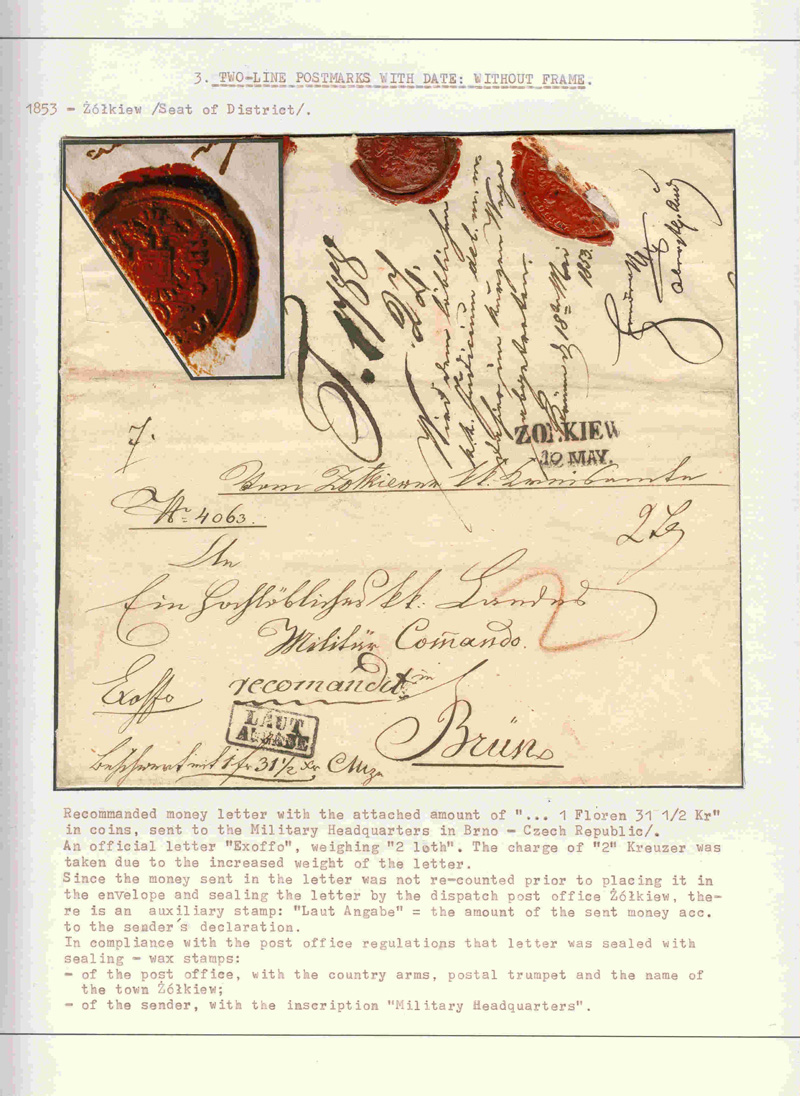 3. TWO-LINE POSTMARKS WITH DATE: WITHOUT FRAME.
1853 - Żółkiew /Seat of District/.
ŻOŁKIEW
10 MAY.
7.
Vom Zolkiewer kk. Kreisamte
Nr. 4063.
An
Ein Hochlöbliches kk. Landes
2
Militär Com̄ando.
Exoffo
recomandit
in
LAUT
ANGABE
Brün
Beschwert mit 1 fr 31 1/2 xr CMze
Recommanded money letter with the attached amount of "... 1 Floren 31 1/2 Kr"
in coins, sent to the Military Headquarters in Brno - Czech Republic/.
An official letter "Exoffo", weighing "2 loth". The charge of "2" Kreuzer was
taken due to the increased weight of the letter.
Since the money sent in the letter was not re-counted prior to placing it in
the envelope and sealing the letter by the dispatch post office Żółkiew, the-
re is an auxiliary stamp: "Laut Angabe" = the amount of the sent money acc.
to the sender's declaration.
In compliance with the post office regulations that letter was sealed with
sealing - wax stamps:
- of the post office, with the country arms, postal trumpet and the name of
the town Żółkiew;
- of the sender, with the inscription "Military Headquarters".